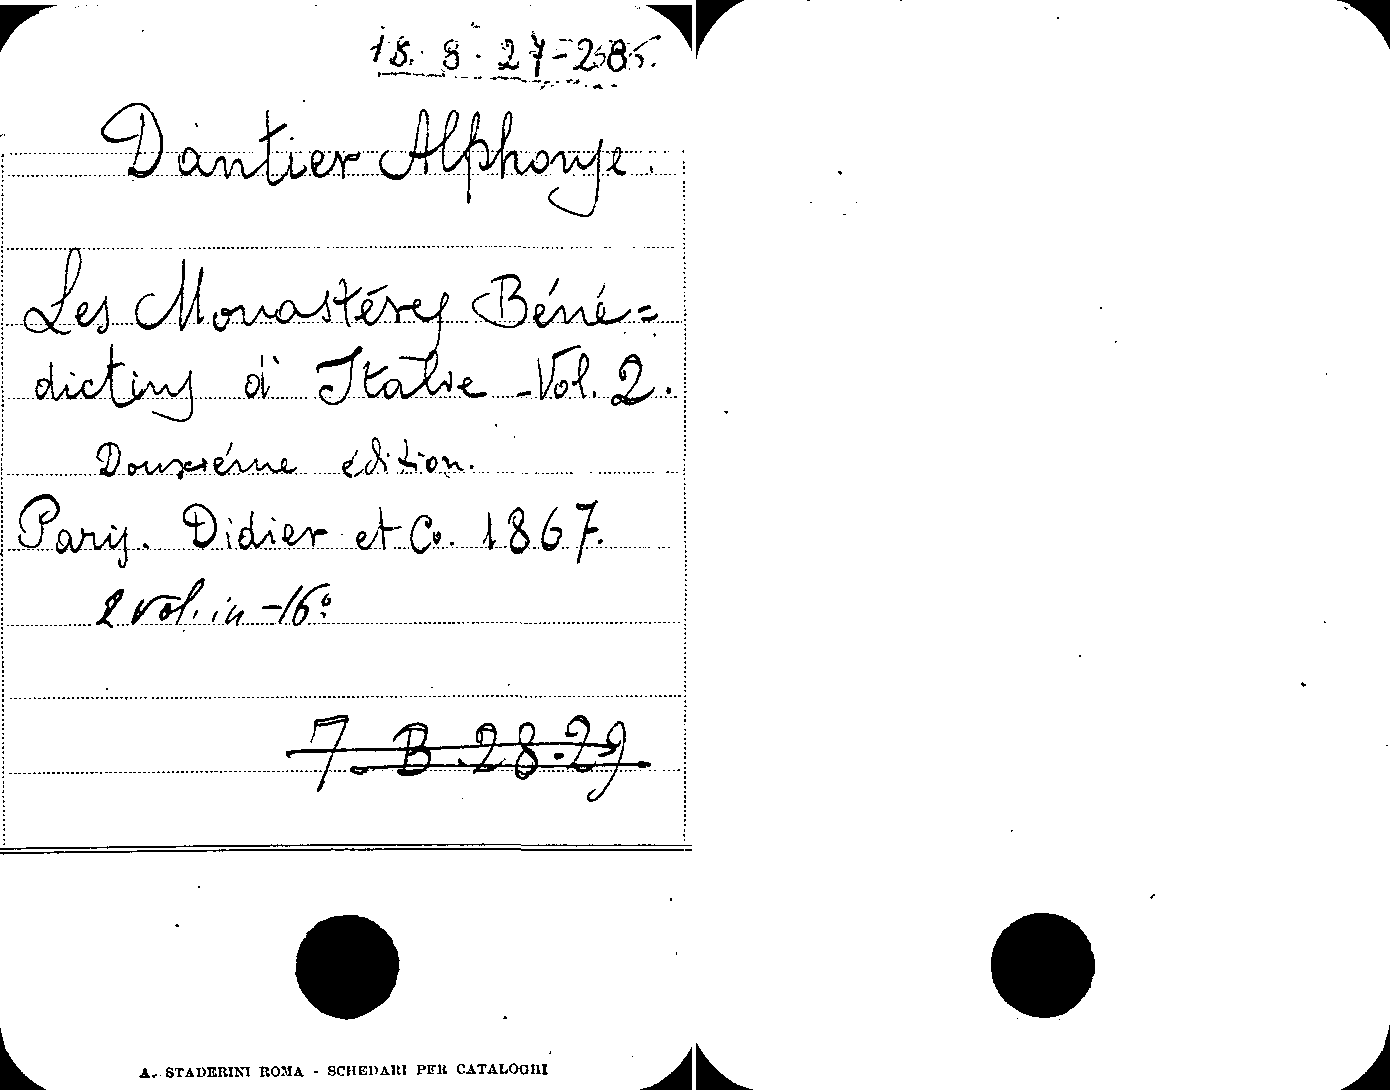 18. 8. 27-285.
Dantier Alphonse.
Les Monastéres Béné=
dictins d' Italie - Vol. 2.
Douxiéme édition.
Paris. Didier et Co. 1867.
2 vol. in -16º
7. B. 28.29
A. STADERINI ROMA - SCHEDARI PER CATALOGHI